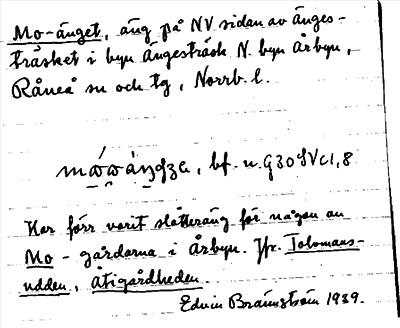 Mo-änget, äng på NV sidan av änges-
träsket i byn Ängesträsk N. byn Årbyn,
Råneå sn och tg, Norrb. l.
bf. u. G30SVc1,8
Har förr varit slåtteräng för någon av
Mo-gårdarna i Årbyn. Jfr. Tolomans-
udden, Åtigårdheden
Edvin Brännström 1939.